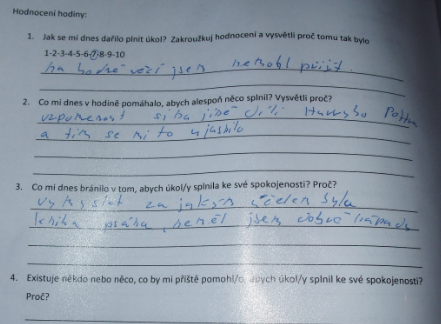 Hodnocení hodiny:
1. Jak se mi dnes dařilo plnit úkol? Zakroužkuj hodnocení a vysvětli proč tomu tak bylo
1-2-3-4-5-6-7-8-9-10
na hodně věcí jsem nemohl přijít.
2. Co mi dnes v hodině pomáhalo, abych alespoň něco splnil? Vysvětli proč?
vzpomenout si na jiné díli Harryho Pottra
a tím se mi to ujasnilo
3. Co mi dnes bránilo v tom, abych úkol/y splnila ke své spokojenosti? Proč?
vymyslet za jakým účelem byla
kniha psána, neměl jsem dobré nápady
4. Existuje někdo nebo něco, co by mi příště pomohl/o, abych úkol/y splnil ke své spokojenosti?
Proč?